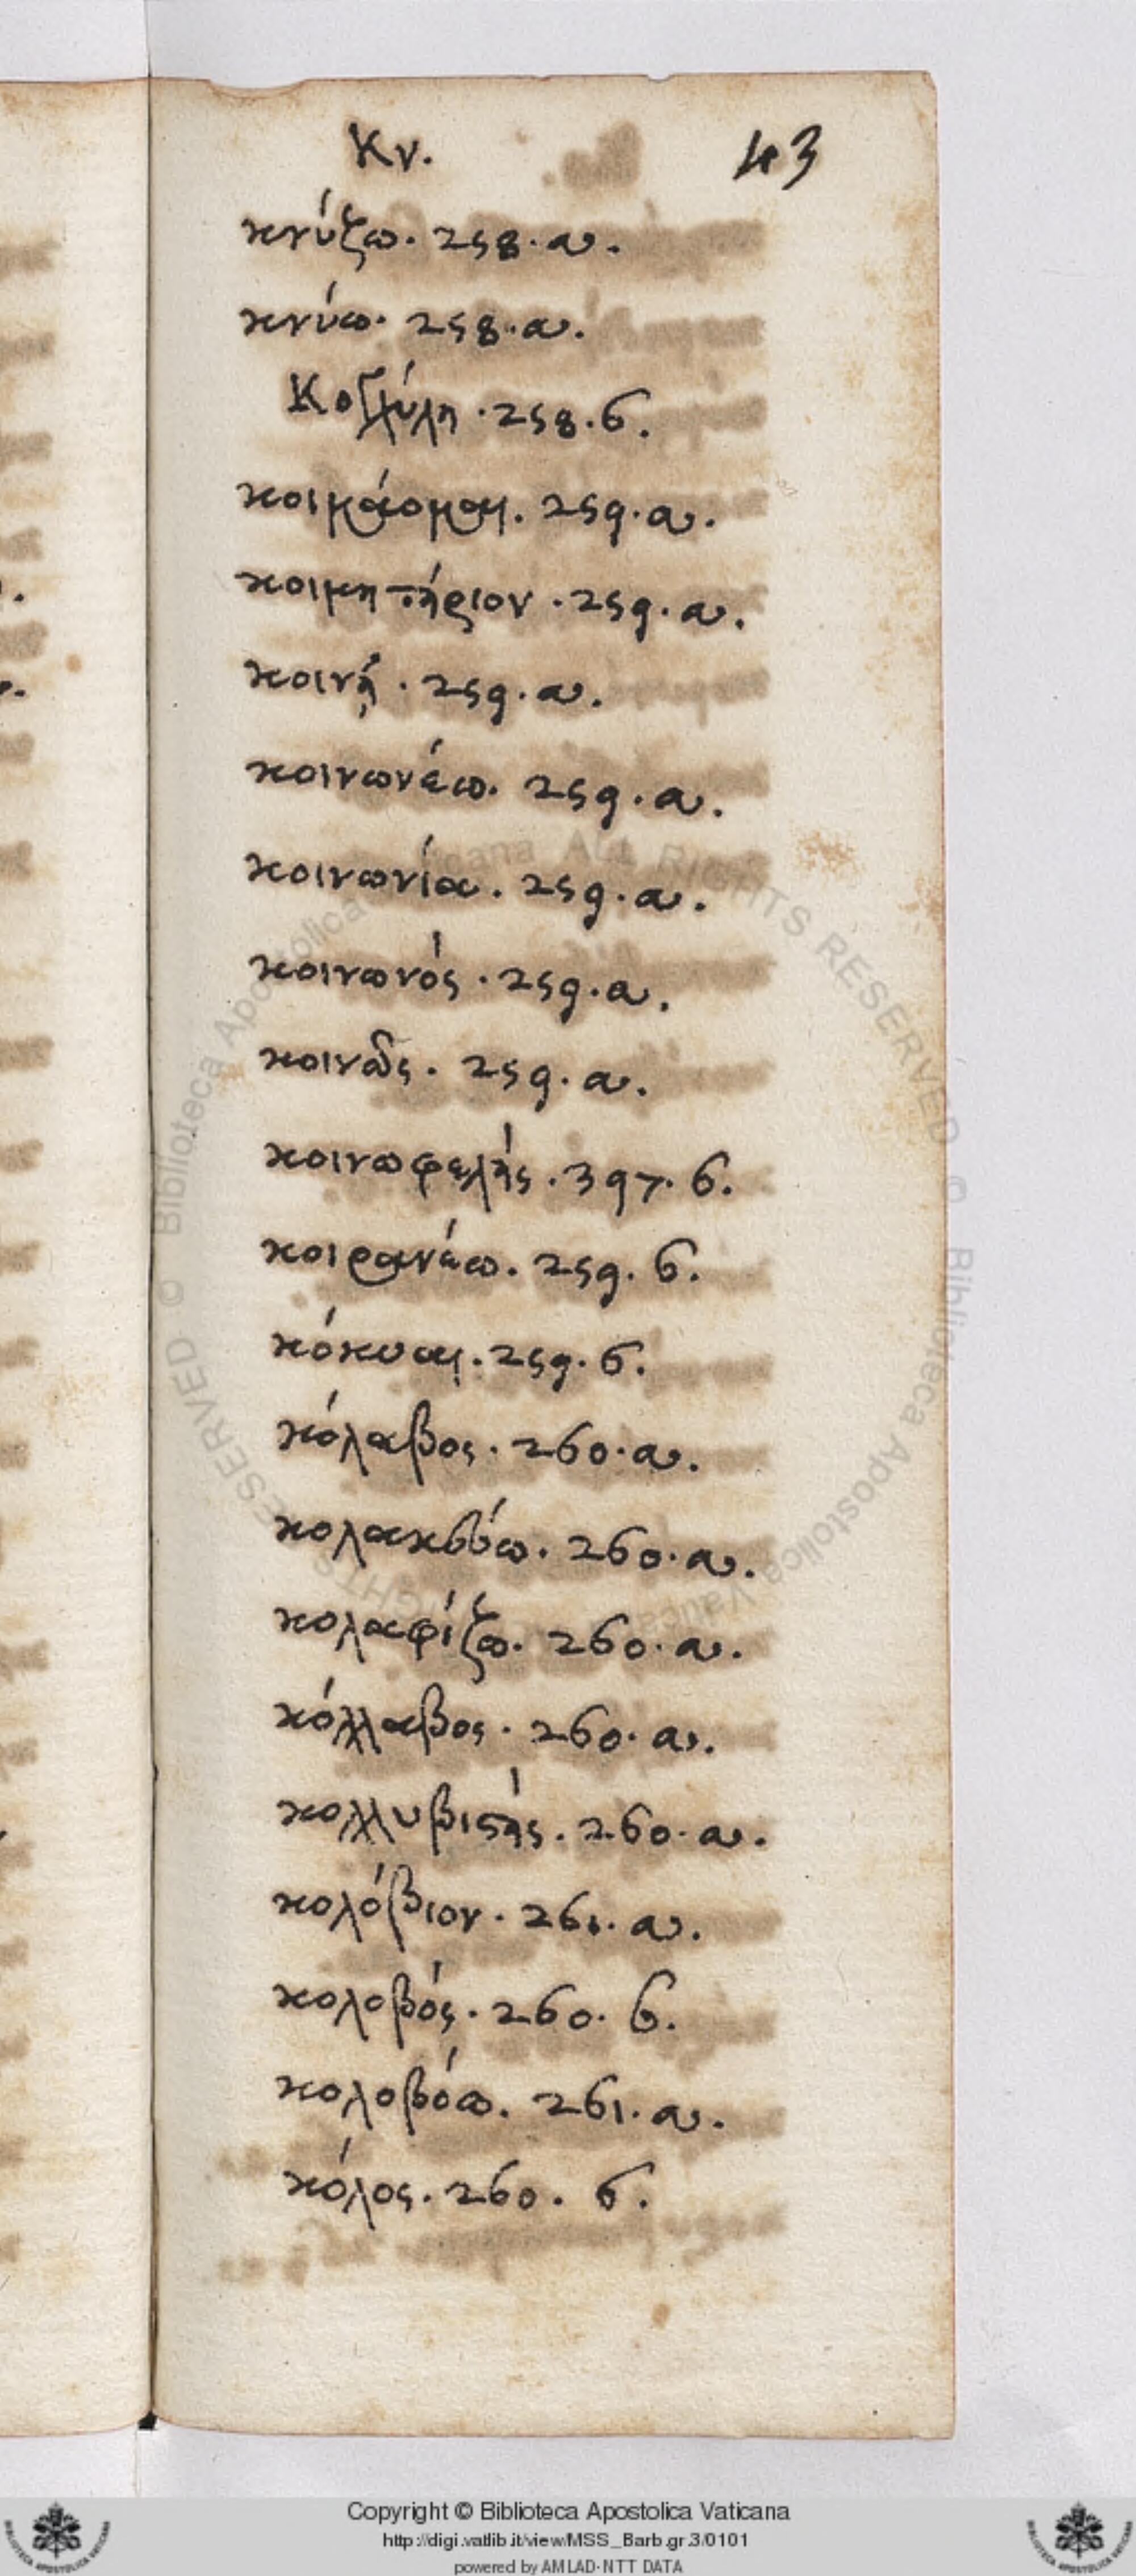 Κν. 43
κνύζω. 258. a.
κνύω. 258. a.
Κογχύλη. 258. b.
κοιμάομαι. 259. a.
κοιμητήριον. 259. a.
κοινῇ. 259. a.
κοινωνέω. 259. a.
κοινωνία. 259. a.
κοινωνός. 259. a.
κοινῶς. 259. a.
κοινωφελής. 397. b.
κοιρανέω. 259. b.
κόκυαι. 259. b.
κόλαβος. 260. a.
κολακεύω. 260. a.
κολαφίζω. 260. a.
κόλλαβος. 260. a.
κολλυβιστής. 260. a.
κολόβιον. 261. a.
κολοβός. 260. b.
κολοβόω. 261. a.
κόλος. 260. b.
Biblioteca Apostolica Vaticana ALL RIGHTS RESERVED © Biblioteca Apostolica Vaticana ALL RIGHTS RESERVED ©
Copyright © Biblioteca Apostolica Vaticana
http://digi.vatlib.it/view/MSS_Barb.gr.3/0101
powered by AMLAD-NTT DATA